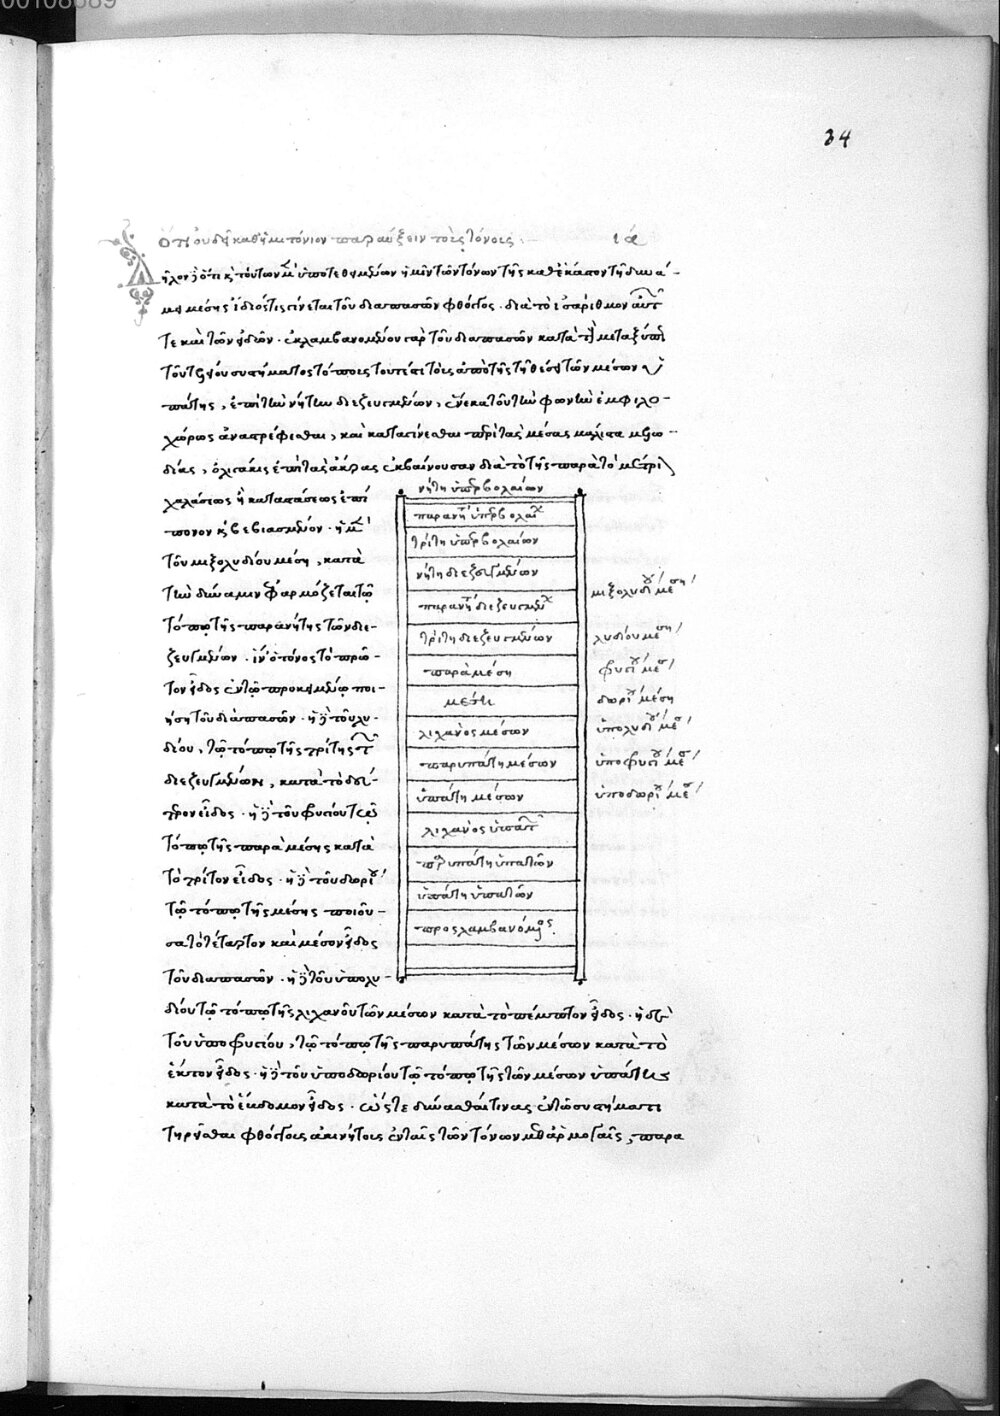 00108689
34
ὅτι οὐ δεῖ καθ' ἡμιτόνιον παραύξειν τοὺς τόνους. ια
Δῆλον δὲ ὅτι καὶ τούτων μὲν ὑποτεθειμένων ἡμῖν τῶν τόνων τῆς καθ' ἕκαστον τῇ δυνά-
μει μέσης ἴδιός τις γίνεται τοῦ διαπασῶν φθόγγος. διὰ τὸ ἰσάριθμον αὐτῶν
τε καὶ τῶν εἰδῶν. ἐκλαμβανομένου γὰρ τοῦ διαπασῶν κατὰ τοὺς μεταξύ πως
τοῦ τελείου συστήματος τόπους τουτέστι τοὺς ἀπὸ τῆς τῇ θέσει τῶν μέσων ὑ
πάτης, ἐπὶ τὴν νήτην διεζευγμένων, ἕνεκα τοῦ τὴν φωνὴν ἐμφιλο-
χώρως ἀναστρέφεσθαι, καὶ καταγίνεσθαι περὶ τὰς μέσας μάλιστα μελω-
δίας, ὀλιγάκις ἐπὶ τὰς ἄκρας ἐκβαίνουσαν διὰ τὸ τῆς παρὰ τὸ μέτριον
χαλάσεως ἢ κατατάσεως ἐπί
πονον καὶ βεβιασμένον. ἡ μὲν
τοῦ μιξολυδίου μέση, κατὰ
τὴν δύναμιν ἐφαρμόζεται τῷ
τόπῳ τῆς παρανήτης τῶν διε-
ζευγμένων. ἵν' ὁ τόνος τὸ πρῶ-
τον εἶδος ἐν τῷ προκειμένῳ ποι-
ήσῃ τοῦ διαπασῶν. ἡ δὲ τοῦ λυ-
δίου, τῷ τόπῳ τῆς τρίτης τῶν
διεζευγμένων, κατὰ τὸ δεύ-
τερον εἶδος. ἡ δὲ τοῦ φρυγίου τῷ
τόπῳ τῆς παραμέσης κατὰ
τὸ τρίτον εἶδος. ἡ δὲ τοῦ δωρίου
τῷ τόπῳ τῆς μέσης ποιοῦ-
σα τὸ τέταρτον καὶ μέσον εἶδος
τοῦ διαπασῶν. ἡ δὲ τοῦ ὑπολυ-
δίου τῷ τόπῳ τῆς λιχανοῦ τῶν μέσων κατὰ τὸ πέμπτον εἶδος. ἡ δὲ
τοῦ ὑποφρυγίου, τῷ τόπῳ τῆς παρυπάτης τῶν μέσων κατὰ τὸ
ἕκτον εἶδος. ἡ δὲ τοῦ ὑποδωρίου τῷ τόπῳ τῆς τῶν μέσων ὑπάτης
κατὰ τὸ ἕβδομον εἶδος. ὥστε δύνασθαί τινας ἐν τῷ συστήματι
τηρεῖσθαι φθόγγους ἀκινήτους ἐν ταῖς τῶν τόνων μεθαρμογαῖς, παρα
νήτη ὑπερβολαίων
παρανήτη ὑπερβολαίων
τρίτη ὑπερβολαίων
νήτη διεζευγμένων
παρανήτη διεζευγμένων
τρίτη διεζευγμένων
παραμέση
μέση
λιχανὸς μέσων
παρυπάτη μέσων
ὑπάτη μέσων
λιχανὸς ὑπάτων
παρυπάτη ὑπάτων
ὑπάτη ὑπάτων
προσλαμβανόμενος
μιξολυδίου μέση
λυδίου μέση
φρυγίου μέση
δωρίου μέση
ὑπολυδίου μέση
ὑποφρυγίου μέση
ὑποδωρίου μέση